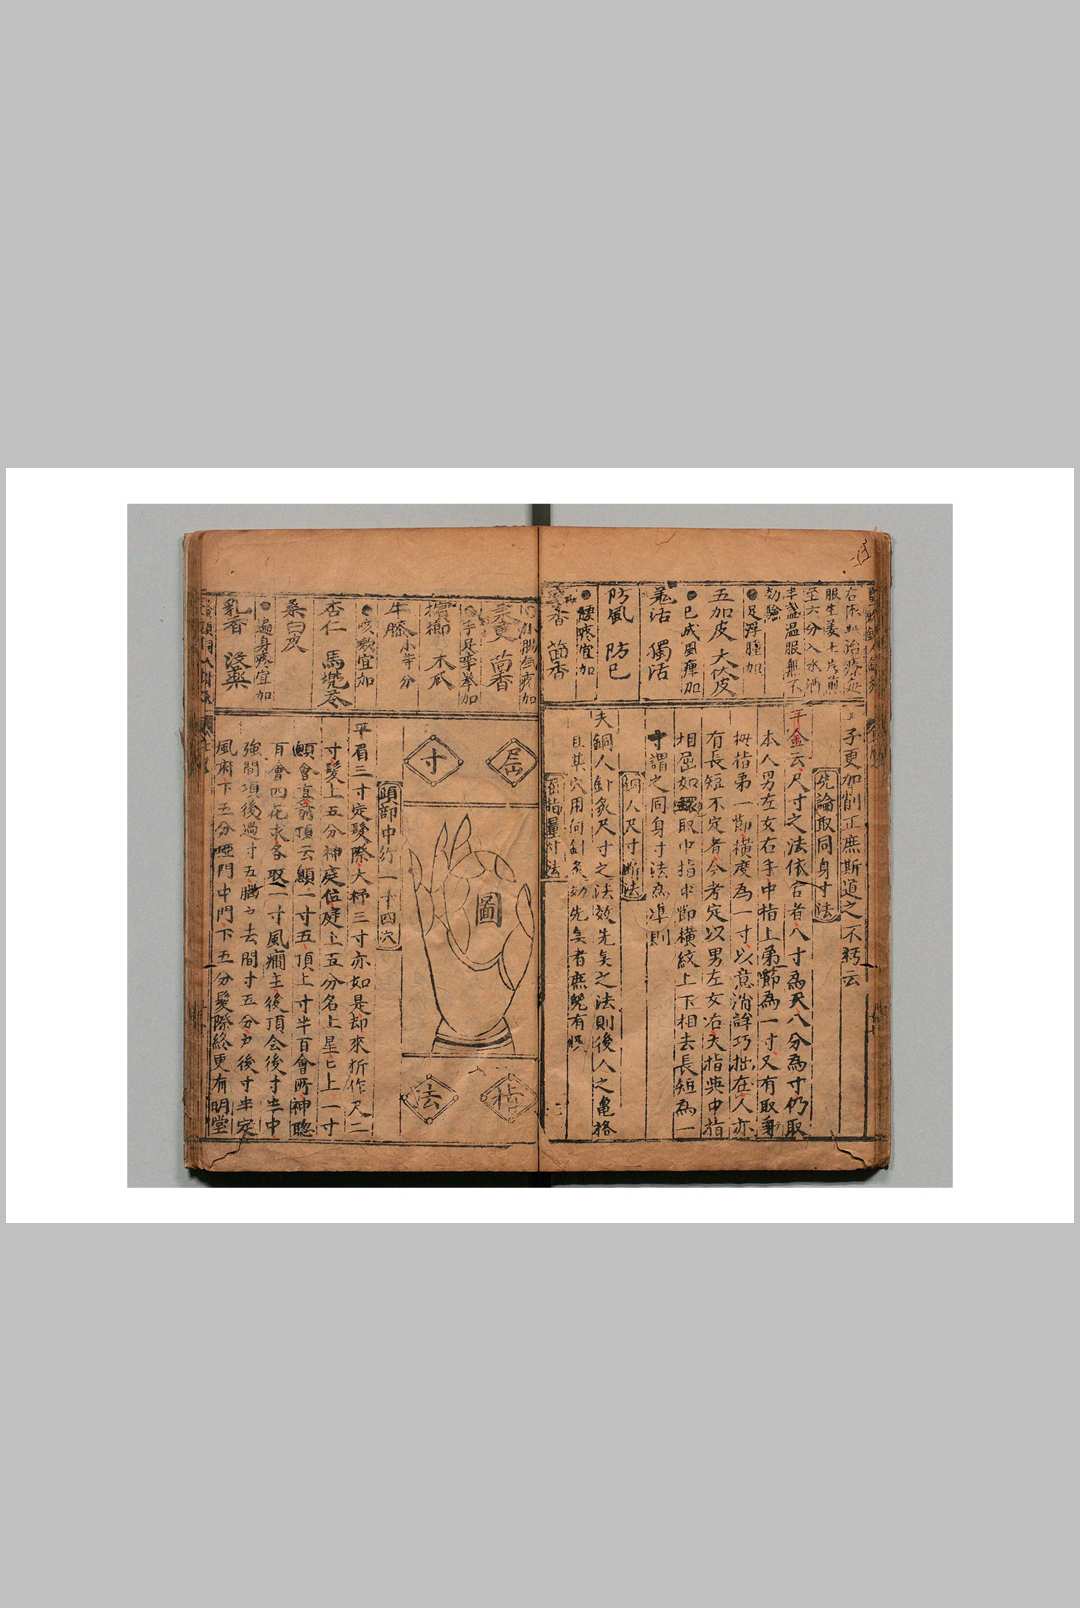 右依此治療
服生姜七片煎
至六分入水酒
半盞温服無不
効驗
●足浮腫加
五加皮 大茯皮
●已成風痺加
羗活 獨活
防風 防巳
●腰疼宜加
茴香
子更加削正庶斯道之不朽云
先論取同身寸法
千金云尺寸之法依合者八寸為尺八分為寸仍取
本人男左女右手中指上第一節為一寸又有取手
拇指第一節橫度為一寸以意消詳巧拙在人亦
有長短不定者今考定以男左女右大指與中指
相屈如環取中指中節橫紋上下相去長短為一
寸謂之同身寸法為準則
銅人尺寸斷法
夫銅人針灸尺寸之法效先矣之法則後人之亀格
且其穴用何針灸効先矣者庶免有
指量寸法
小腸氣疼加
茴香
●手足攣拳加
檳榔 木瓜
牛膝各等分
●咳嗽宜加
杏仁 馬兠苓
桑白皮
●遍身疼宜加
乳香 沒藥
屈
寸
圖
指
法
頭部中行一十四穴
平眉三寸定髮際大杼三寸亦如是却來折作尺二
寸髮上五分神庭位庭上五分名上星七上一寸
顖會直前頂云顖一寸五頂上寸半百會所神聰
百會四花求各取一寸風癎主後頂会後寸半中
強間項後過寸五腦戶去間寸五分戶後寸半定
風府下五分啞門中門下五分髮際終更有明堂